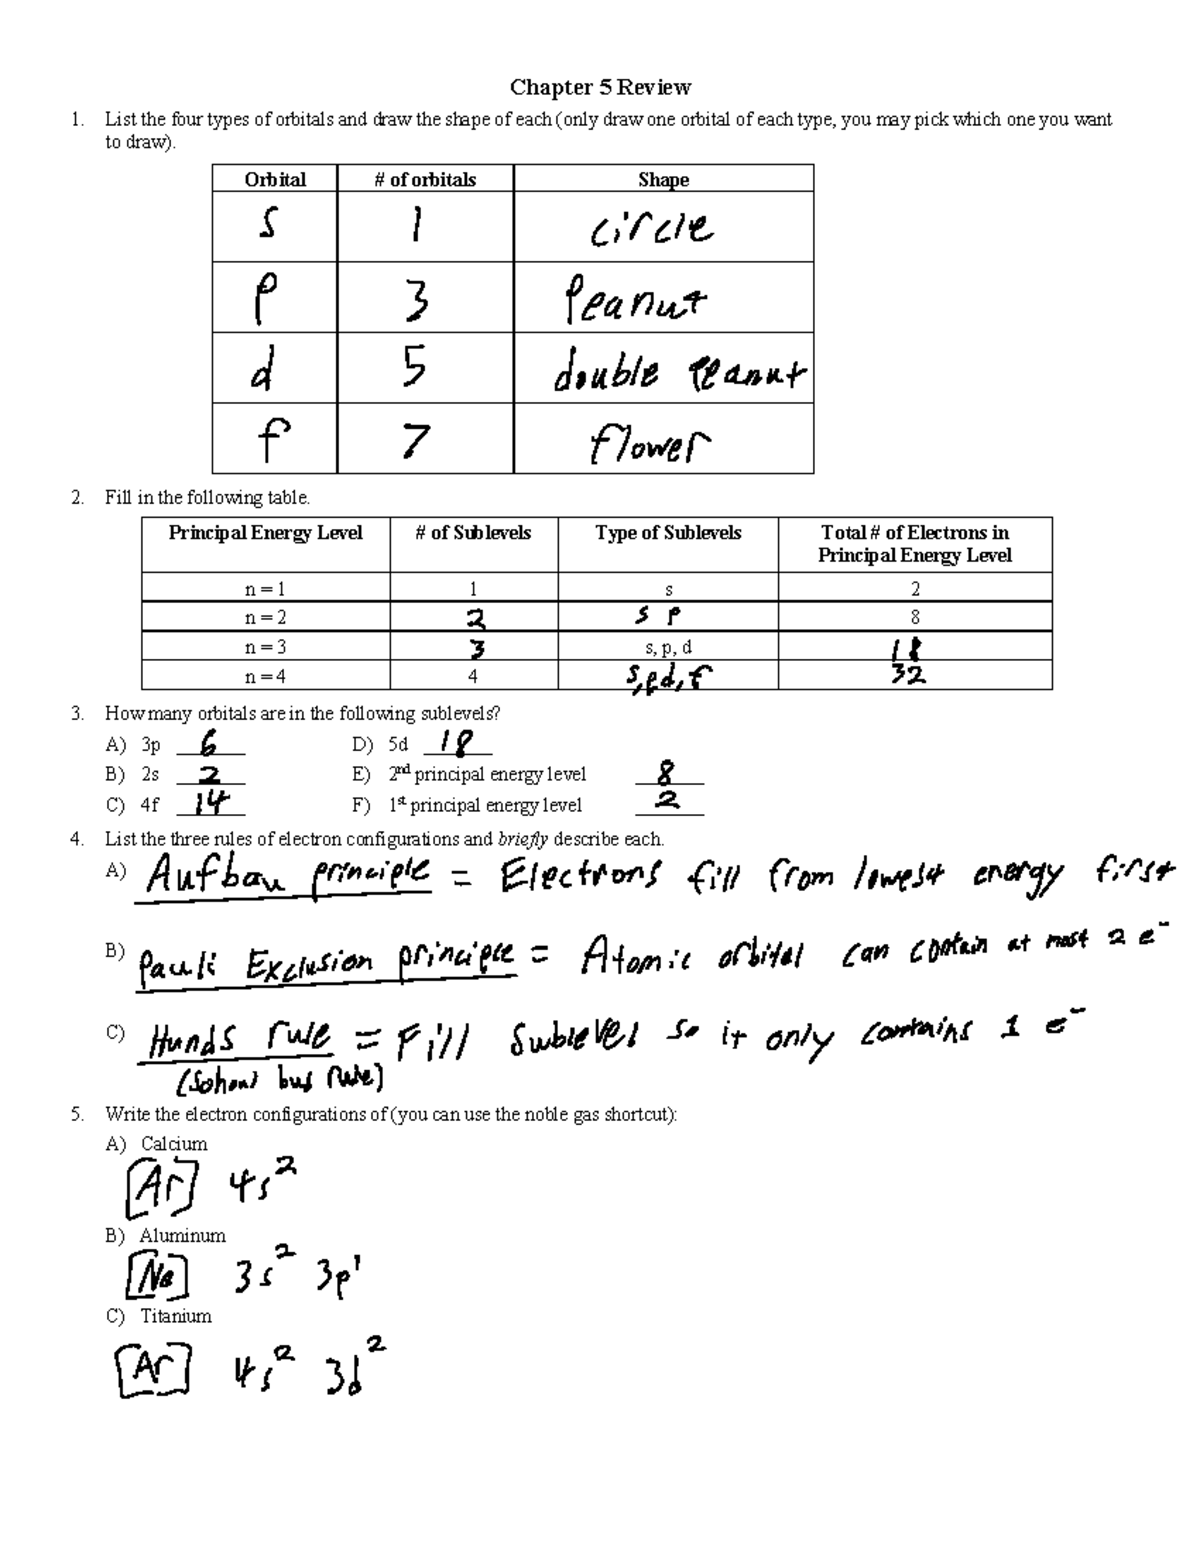 Chapter 5 Review
1. List the four types of orbitals and draw the shape of each (only draw one orbital of each type, you may pick which one you want
to draw).
Orbital # of orbitals Shape
s 1 circle
p 3 Peanut
d 5 double Peanut
f 7 flower
2. Fill in the following table.
Principal Energy Level # of Sublevels Type of Sublevels Total # of Electrons in
Principal Energy Level
n = 1 1 s 2
n = 2 2 s p 8
n = 3 3 s, p, d 18
n = 4 4 s, p d, f 32
3. How many orbitals are in the following sublevels?
A) 3p 6 D) 5d 18
B) 2s 2 E) 2nd principal energy level 8
C) 4f 14 F) 1st principal energy level 2
4. List the three rules of electron configurations and briefly describe each.
A) Aufbau principle = Electrons fill from lowest energy first
B) Pauli Exclusion principle = Atomic orbital can contain at most 2 e⁻
C) Hunds rule = Fill Sublevel so it only contains 1 e⁻
(School bus rule)
5. Write the electron configurations of (you can use the noble gas shortcut):
A) Calcium
[Ar] 4s²
B) Aluminum
[Ne] 3s² 3p¹
C) Titanium
[Ar] 4s² 3d²